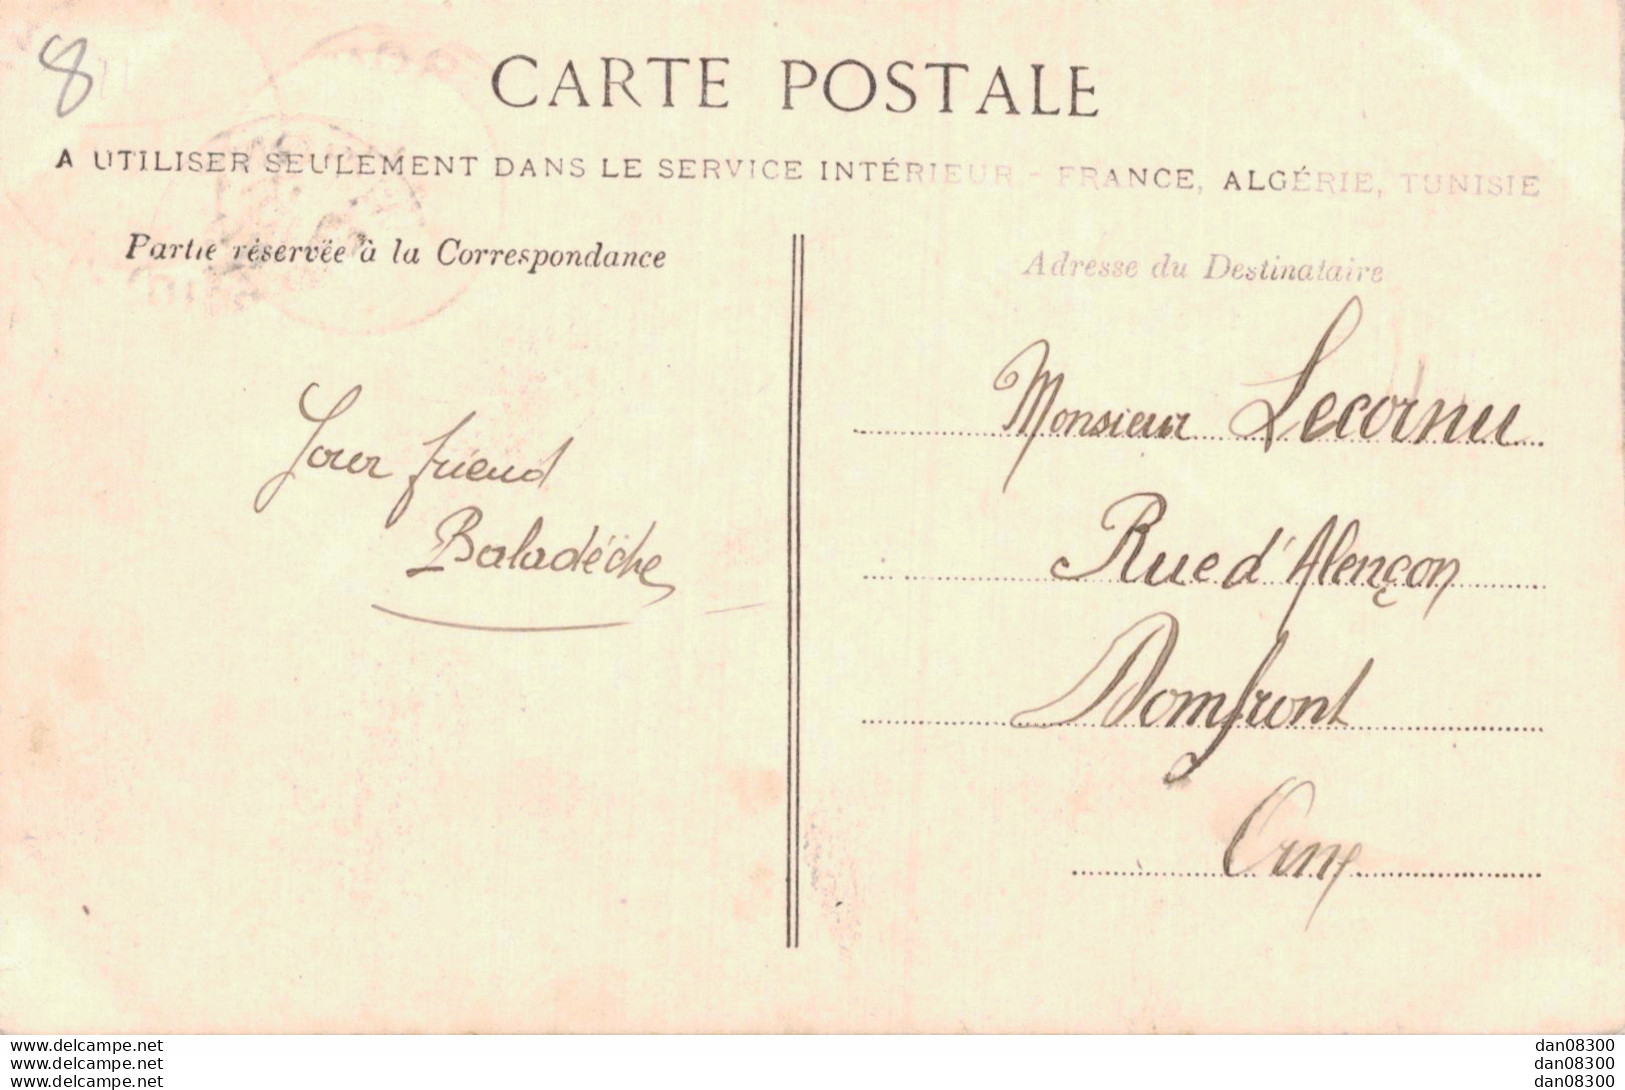 8
CARTE POSTALE
A UTILISER SEULEMENT DANS LE SERVICE INTÉRIEUR - FRANCE, ALGÉRIE, TUNISIE
Partie réservée à la Correspondance
Your friend
Baladèche
Adresse du Destinataire
Monsieur Lecornu
Rue d'Alençon
Domfront
Orne
www.delcampe.net
www.delcampe.net
www.delcampe.net
dan08300
dan08300
dan08300